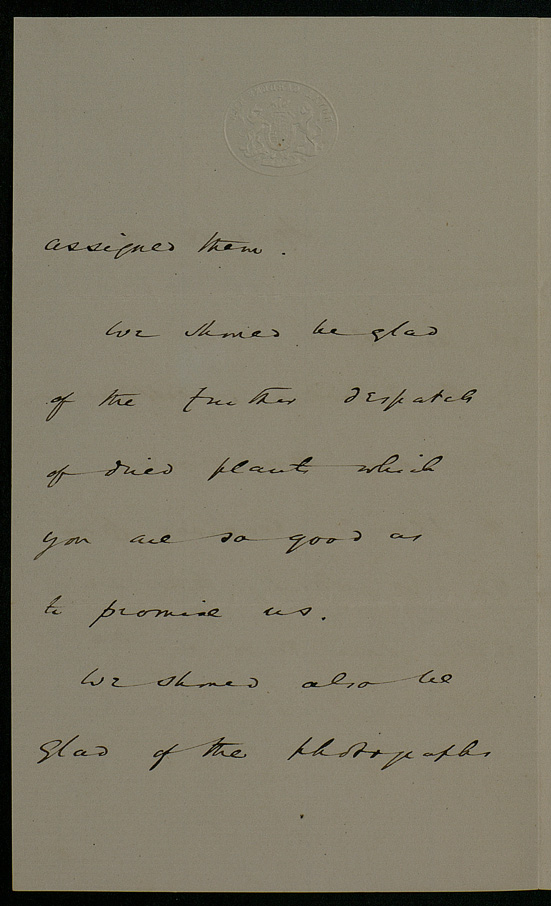 assigned them.
We should be glad
of the further despatch
of dried plants which
you are so good as
to promise us.
We should also be
glad of the photographs